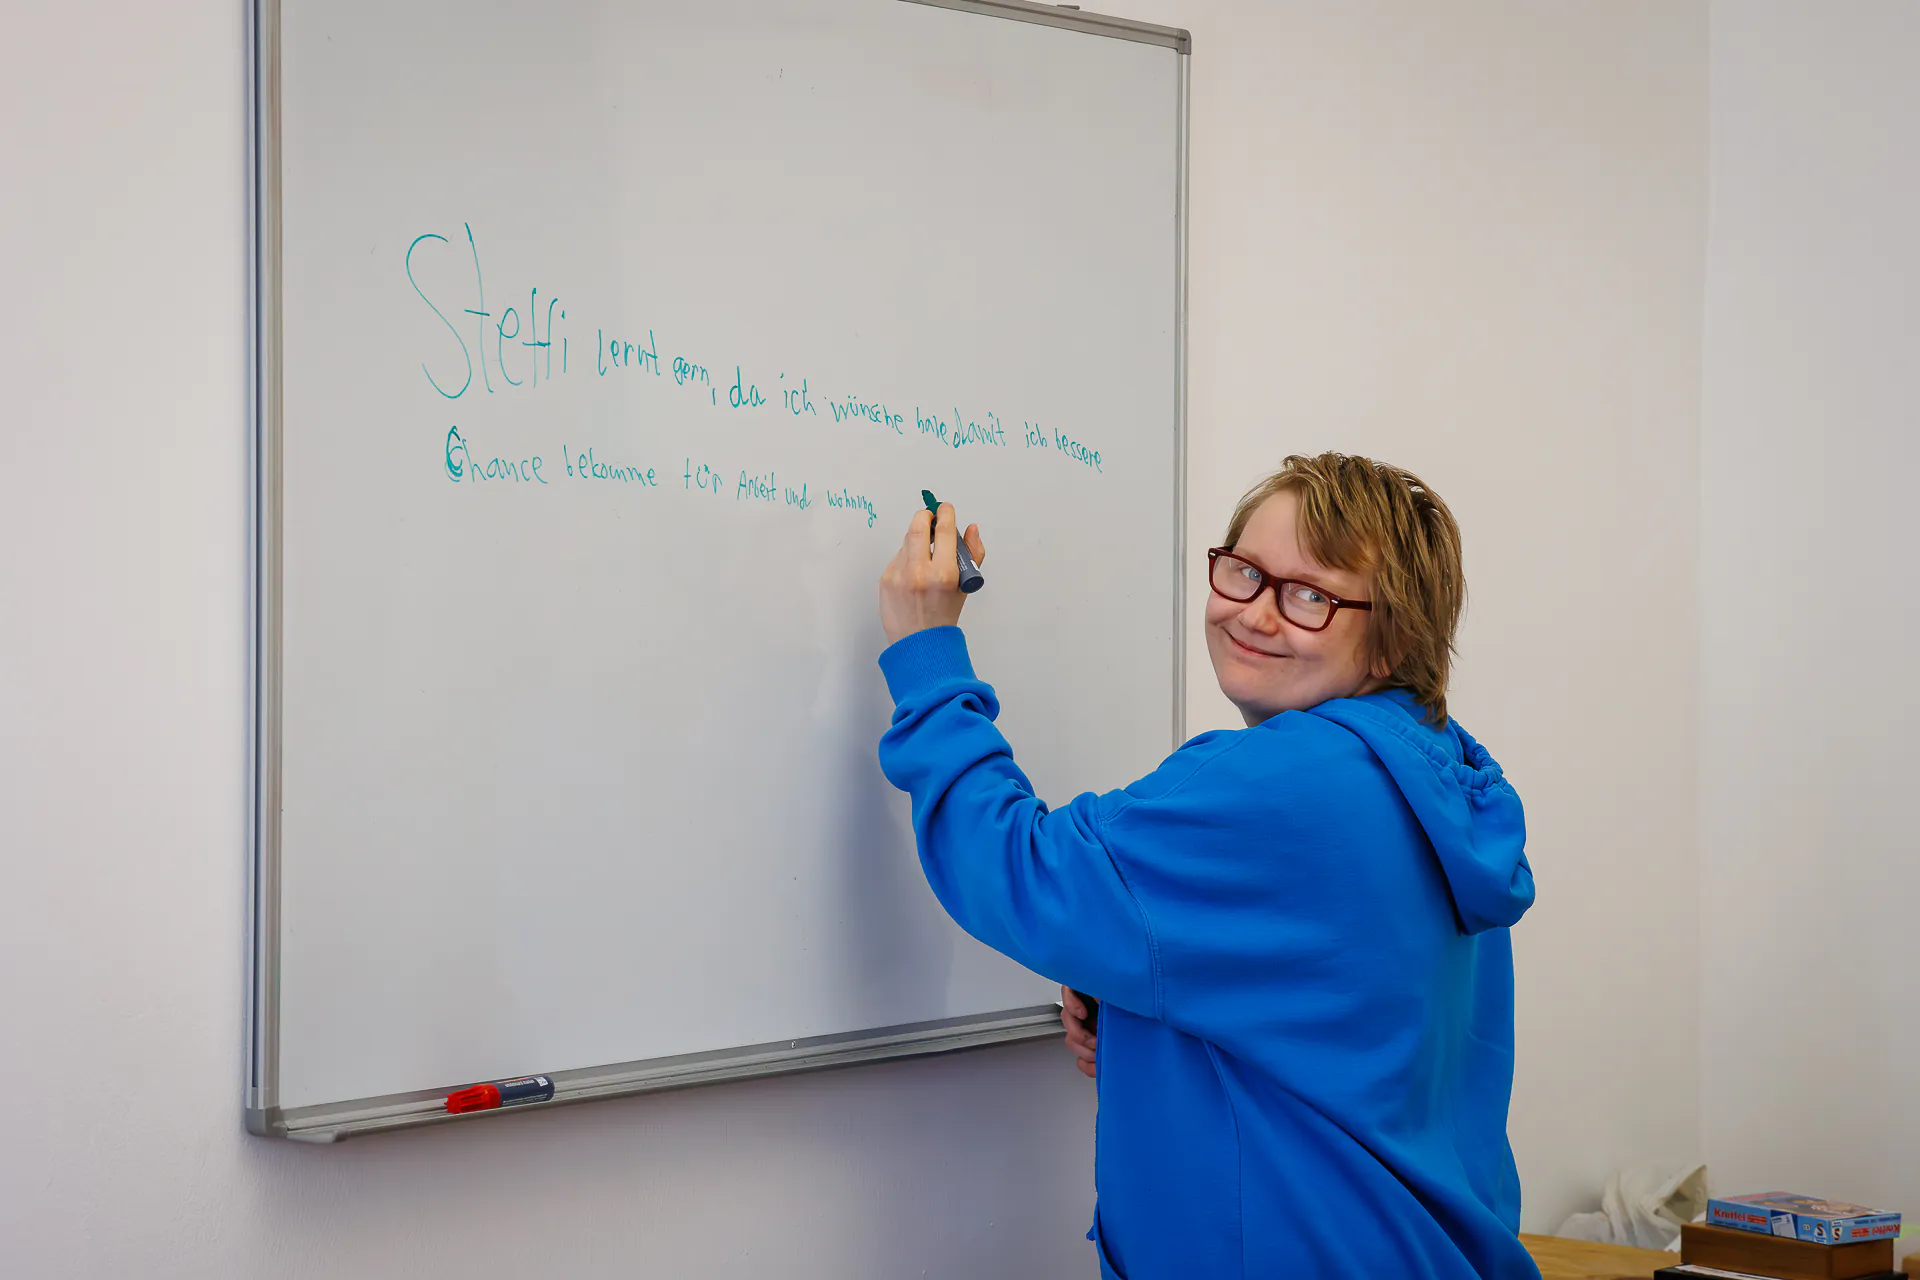 Steffi lernt gern, da ich wünsche habe damit ich bessere
Chance bekomme für Arbeit und wohnung.
Kniffel